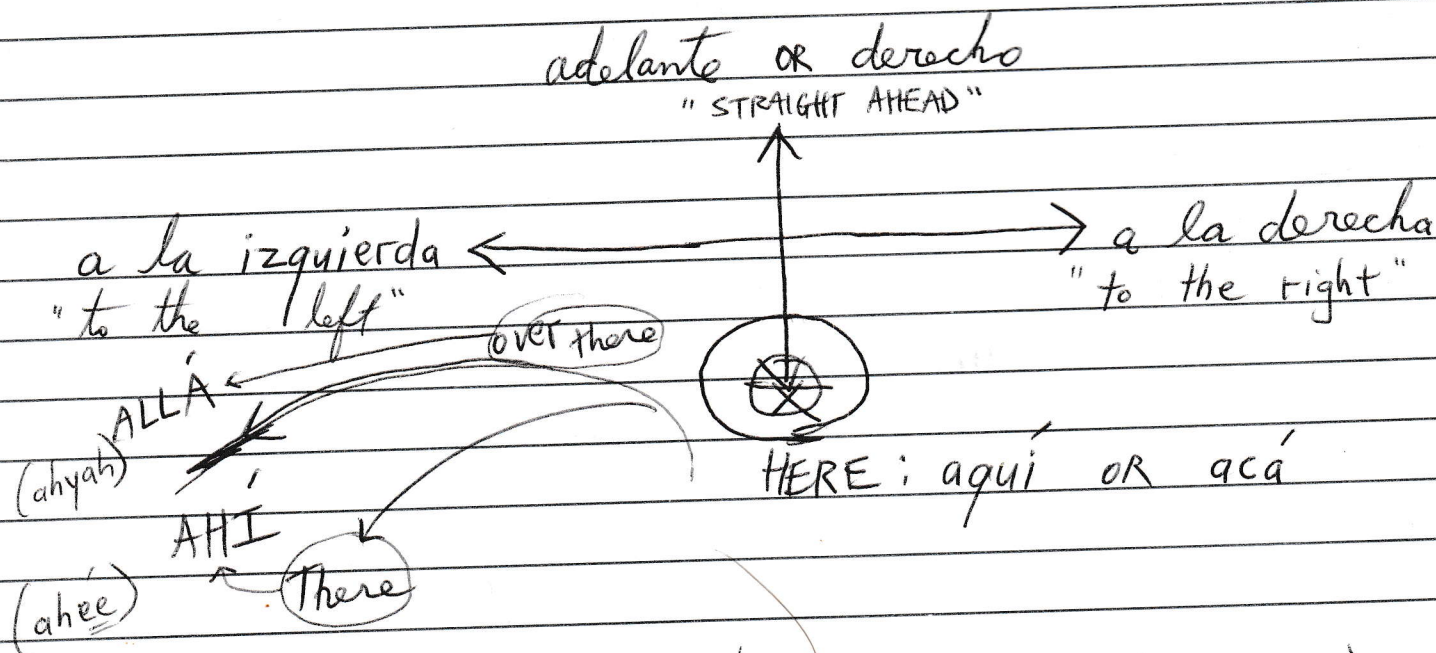 adelante OR derecho
"STRAIGHT AHEAD"
a la izquierda
"to the left"
a la derecha
"to the right"
over there
ALLÁ
(ahyah)
HERE: aquí OR acá
AHÍ
There
(ahée)